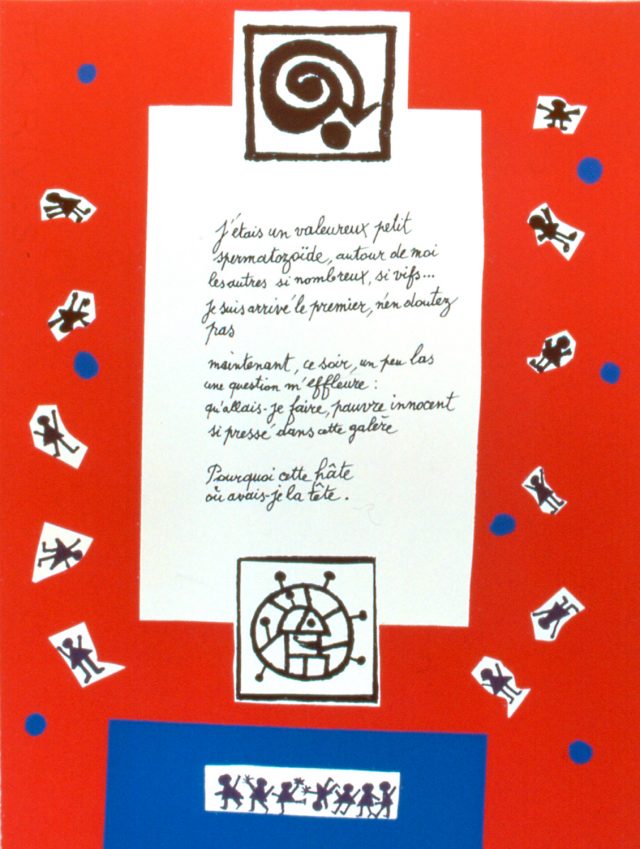 J'étais un valeureux petit
spermatozoïde, autour de moi
les autres si nombreux, si vifs...
Je suis arrivé le premier, n'en doutez
pas
maintenant, ce soir, un peu las
une question m'effleure :
qu'allais-je faire, pauvre innocent
si pressé dans cette galère
Pourquoi cette hâte
où avais-je la tête.